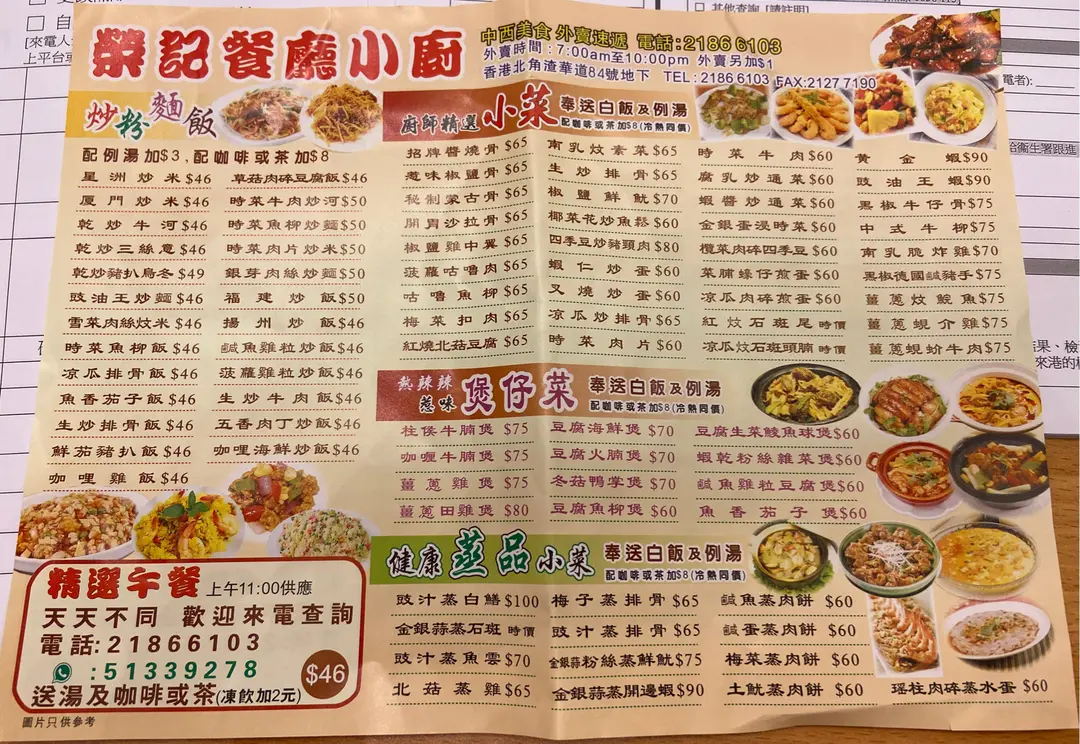 榮記餐廳小廚
中西美食 外賣速遞 電話:2186 6103
外賣時間:7:00am至10:00pm 外賣另加$1
香港北角渣華道84號地下 TEL:2186 6103 FAX:2127 7190
炒粉麵飯
配例湯加$3,配咖啡或茶加$8
星洲炒米$46
厦門炒米$46
乾炒牛河$46
乾炒三絲意$46
乾炒豬扒烏冬$49
豉油王炒麵$46
雪菜肉絲炆米$46
時菜魚柳飯$46
凉瓜排骨飯$46
魚香茄子飯$46
生炒排骨飯$46
鮮茄豬扒飯$46
咖哩雞飯$46
草菇肉碎豆腐飯$46
時菜牛肉炒河$50
時菜魚柳炒麵$50
時菜肉片炒米$50
銀芽肉絲炒麵$50
福建炒飯$50
揚州炒飯$46
鹹魚雞粒炒飯$46
菠蘿雞粒炒飯$46
生炒牛肉飯$46
五香肉丁炒飯$46
咖哩海鮮炒飯$46
廚師精選 小菜 奉送白飯及例湯
配咖啡或茶加$8(冷熱同價)
招牌醬燒骨$65
惹味椒鹽骨$65
秘制蒙古骨$65
開胃沙拉骨$65
椒鹽雞中翼$65
菠蘿咕嚕肉$65
咕嚕魚柳$65
梅菜扣肉$65
紅燒北菇豆腐$65
南乳炆素菜$65
生炒排骨$65
椒鹽鮮魷$70
椰菜花炒魚鬆$60
四季豆炒豬頸肉$80
蝦仁炒蛋$60
叉燒炒蛋$60
凉瓜炒排骨$65
時菜肉片$60
時菜牛肉$60
腐乳炒通菜$60
蝦醬炒通菜$60
金銀蛋浸時菜$60
欖菜肉碎四季豆$60
菜脯蠔仔煎蛋$60
凉瓜肉碎煎蛋$60
紅炆石斑尾 時價
凉瓜炆石斑頭腩 時價
黃金蝦$90
豉油王蝦$90
黑椒牛仔骨$75
中式牛柳$75
南乳脆炸雞$70
黑椒德國鹹豬手$75
薑蔥炆鯇魚$75
薑蔥蜆介雞$75
薑蔥蜆蚧牛肉$75
熱辣辣 惹味 煲仔菜 奉送白飯及例湯
配咖啡或茶加$8(冷熱同價)
柱侯牛腩煲$75
咖喱牛腩煲$75
薑蔥雞煲$75
薑蔥田雞煲$80
豆腐海鮮煲$70
豆腐火腩煲$70
冬菇鴨掌煲$70
豆腐魚柳煲$60
豆腐生菜鯪魚球煲$60
蝦乾粉絲雜菜煲$60
鹹魚雞粒豆腐煲$60
魚香茄子煲$60
健康蒸品小菜 奉送白飯及例湯
配咖啡或茶加$8(冷熱同價)
豉汁蒸白鱔$100
金銀蒜蒸石斑 時價
豉汁蒸魚雲$70
北菇蒸雞$65
梅子蒸排骨$65
豉汁蒸排骨$65
金銀蒜粉絲蒸鮮魷$75
金銀蒜蒸開邊蝦$90
鹹魚蒸肉餅$60
鹹蛋蒸肉餅$60
梅菜蒸肉餅$60
土魷蒸肉餅$60
瑶柱肉碎蒸水蛋$60
精選午餐 上午11:00供應
天天不同 歡迎來電查詢
電話:21866103
:51339278
$46
送湯及咖啡或茶(凍飲加2元)
圖片只供參考
其他查詢 [請註明]
[來電人
上平台或
電者):
衞生署跟進
結果、檢
來港的